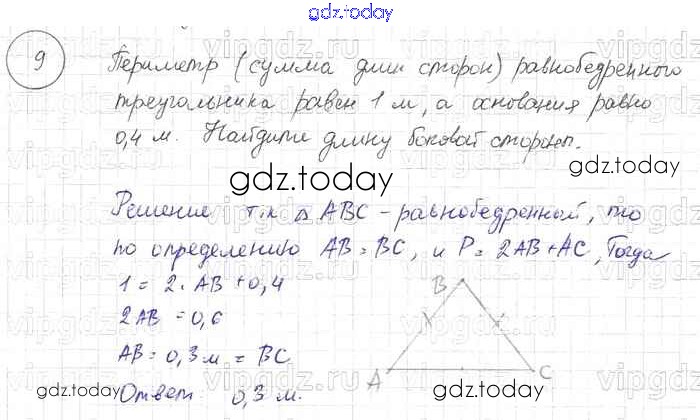 gdz.today
9
Периметр (сумма длин сторон) равнобедренного
треугольника равен 1 м, а основания равно
0,4 м. Найдите длину боковой сторон.
gdz.today
Решение т.к △ ABC - равнобедренный, то
по определению AB = BC, и P = 2AB + AC, Тогда
1 = 2 · AB + 0,4
2AB = 0,6
AB = 0,3 м = BC
Ответ: 0,3 м.
B
A
C
gdz.today
gdz.today
vipgdz.ru